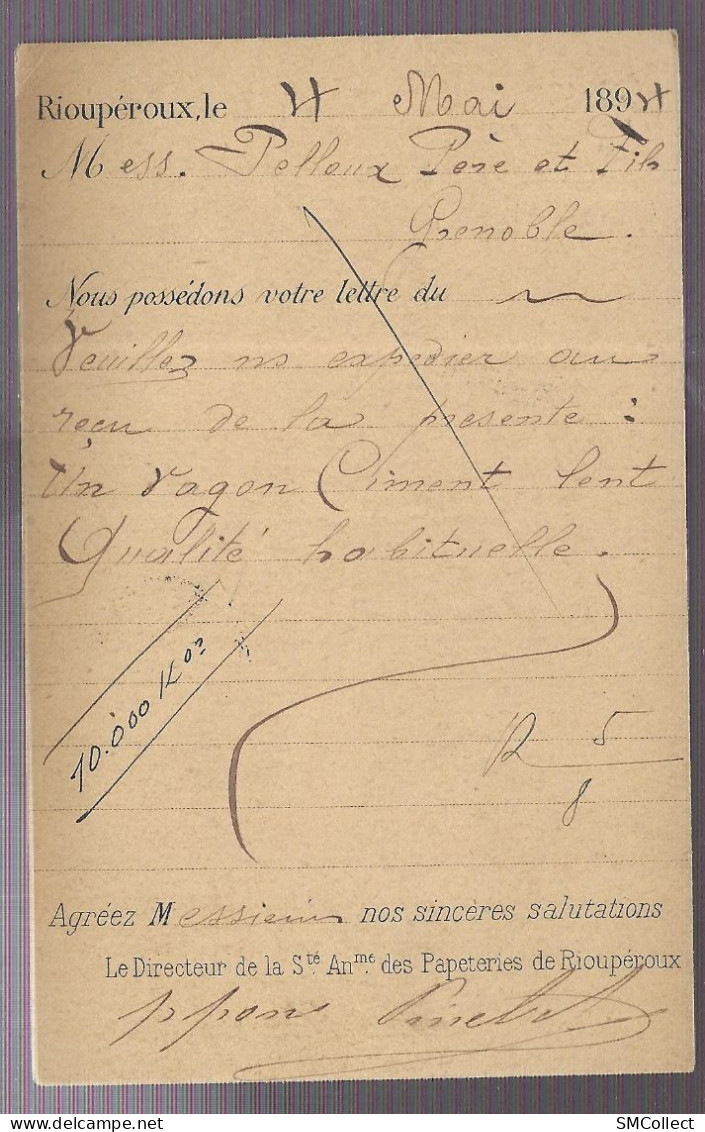 Rioupéroux, le 4 Mai 1894
Mess. Pelloux Père et Fils
Grenoble.
Nous possédons votre lettre du
Veuillez ns expedier au
reçu de la presente :
Un vagon Ciment lent
Qualité habituelle.
10.000 Kos
R 5
8
Agréez Messieurs nos sincères salutations
Le Directeur de la Sté. Anme. des Papeteries de Rioupéroux
SMCollect